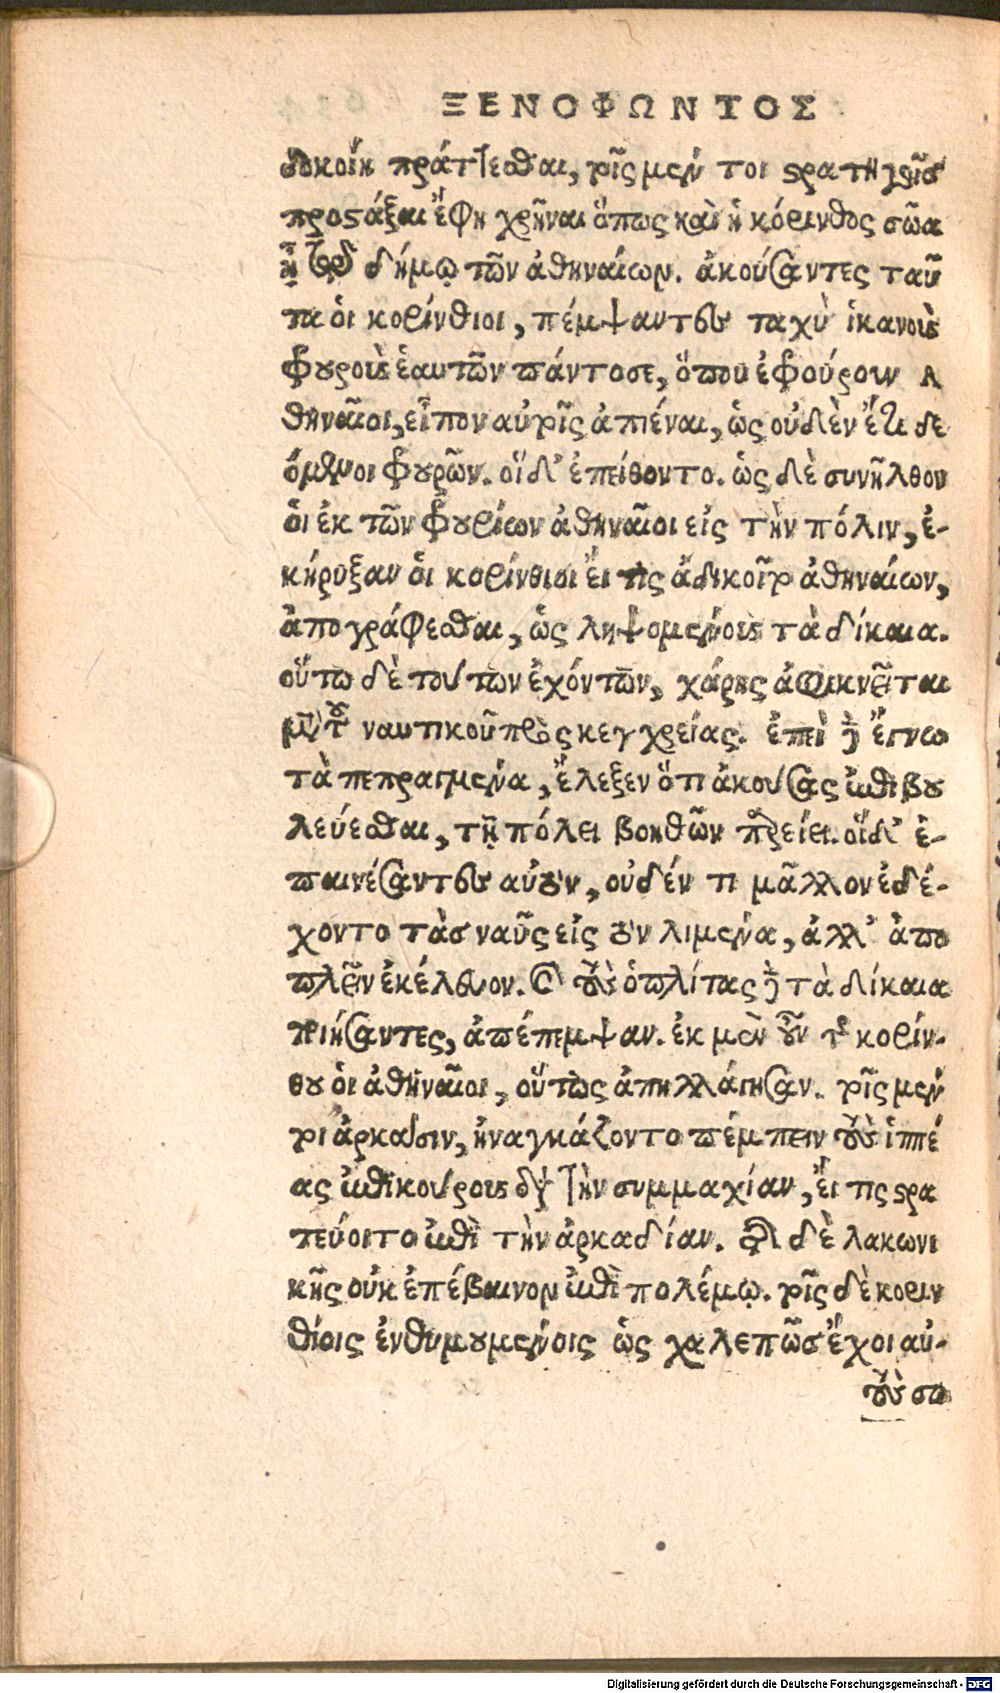 ΞΕΝΟΦΩΝΤΟΣ
δοκοίη πράττεσθαι, τοῖς μέν τοι στρατηγοῖσ
προστάξαι ἔφη χρῆναι ὅπως καὶ ἡ κόρινθος σῶα
ᾖ τῷ δήμῳ τῶν ἀθηναίων. ἀκούσαντες ταῦ
τα ὁι κορίνθιοι, πέμψαντες ταχὺ ἱκανοὺς
φρουροὺς ἑαυτῶν πάντοσε, ὅπου ἐφρούρουν Α
θηναῖοι, εἶπον αὐτοῖς ἀπιέναι, ὡς οὐδὲν ἔτι δε
όμενοι φρουρῶν. οἵδ' ἐπείθοντο. ὡς δὲ συνῆλθον
ὁι ἐκ τῶν φρουρίων ἀθηναῖοι εἰς τὴν πόλιν, ἐ-
κήρυξαν ὁι κορίνθιοι ἔι τις ἀδικοῖτο ἀθηναίων,
ἀπογράφεσθαι, ὡς ληψομένους τὰ δίκαια.
οὕτω δὲ τούτων ἐχόντων, χάρης ἀφικνεῖται
μετὰ τοῦ ναυτικοῦ πρὸς κεγχρείας. ἐπεὶ δ' ἔγνω
τὰ πεπραγμένα, ἔλεξεν ὅτι ἀκούσας ἐπιβου
λεύεσθαι, τῇ πόλει βοηθῶν παρείει. οἵδ' ἐ-
παινέσαντες αὐτὸν, οὐδέν τι μᾶλλον ἐδέ-
χοντο τὰσ ναῦς εἰς τὸν λιμένα, ἀλλ' ἀπο
πλεῖν ἐκέλευον. καὶ τοὺς ὁπλίτας δὲ τὰ δίκαια
ποιήσαντες, ἀπέπεμψαν. ἐκ μὲν οὖν τῆς κορίν-
θου ὁι ἀθηναῖοι, οὕτως ἀπηλλάγησαν. τοῖς μέν
τοι ἀρκάσιν, ἠναγκάζοντο πέμπειν τοὺς ἱππέ
ας ἐπικούρους διὰ τὴν συμμαχίαν, ἔι τις στρα
τεύοιτο ἐπὶ τὴν ἀρκαδίαν. τῆς δὲ λακωνι
κῆς οὐκ ἐπέβαινον ἐπὶ πολέμῳ. τοῖς δὲ κοριν
θίοις ἐνθυμουμένοις ὡς χαλεπῶσ ἔχοι αὐ-
τοὺς σω
Digitalisierung gefördert durch die Deutsche Forschungsgemeinschaft - DFG